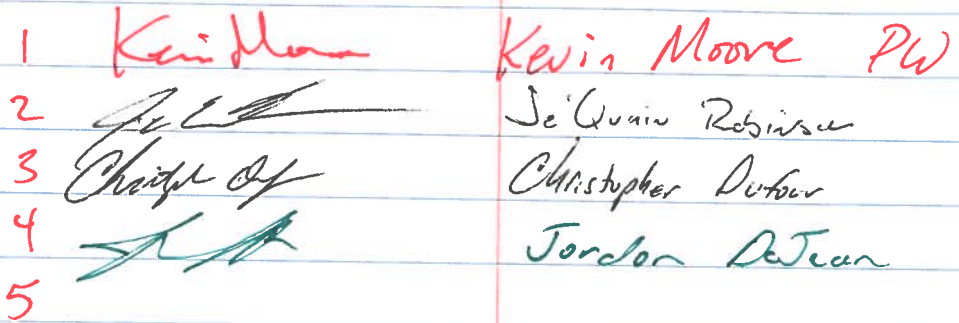 1 Kevin Moore Kevin Moore PW
2 Je'Quain Robinson
3 Christopher Dufour
4 Jordon DeJean
5